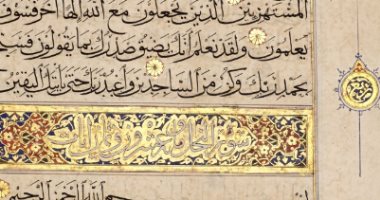 المستهزئين الذين يجعلون مع الله إلها آخر فسوف
يعلمون ولقد نعلم أنك يضيق صدرك بما يقولون فسبح
بحمد ربك وكن من الساجدين واعبد ربك حتى يأتيك اليقين
سورة النحل مائة وعشرون وثمان آيات
بسم الله الرحمن الرحيم